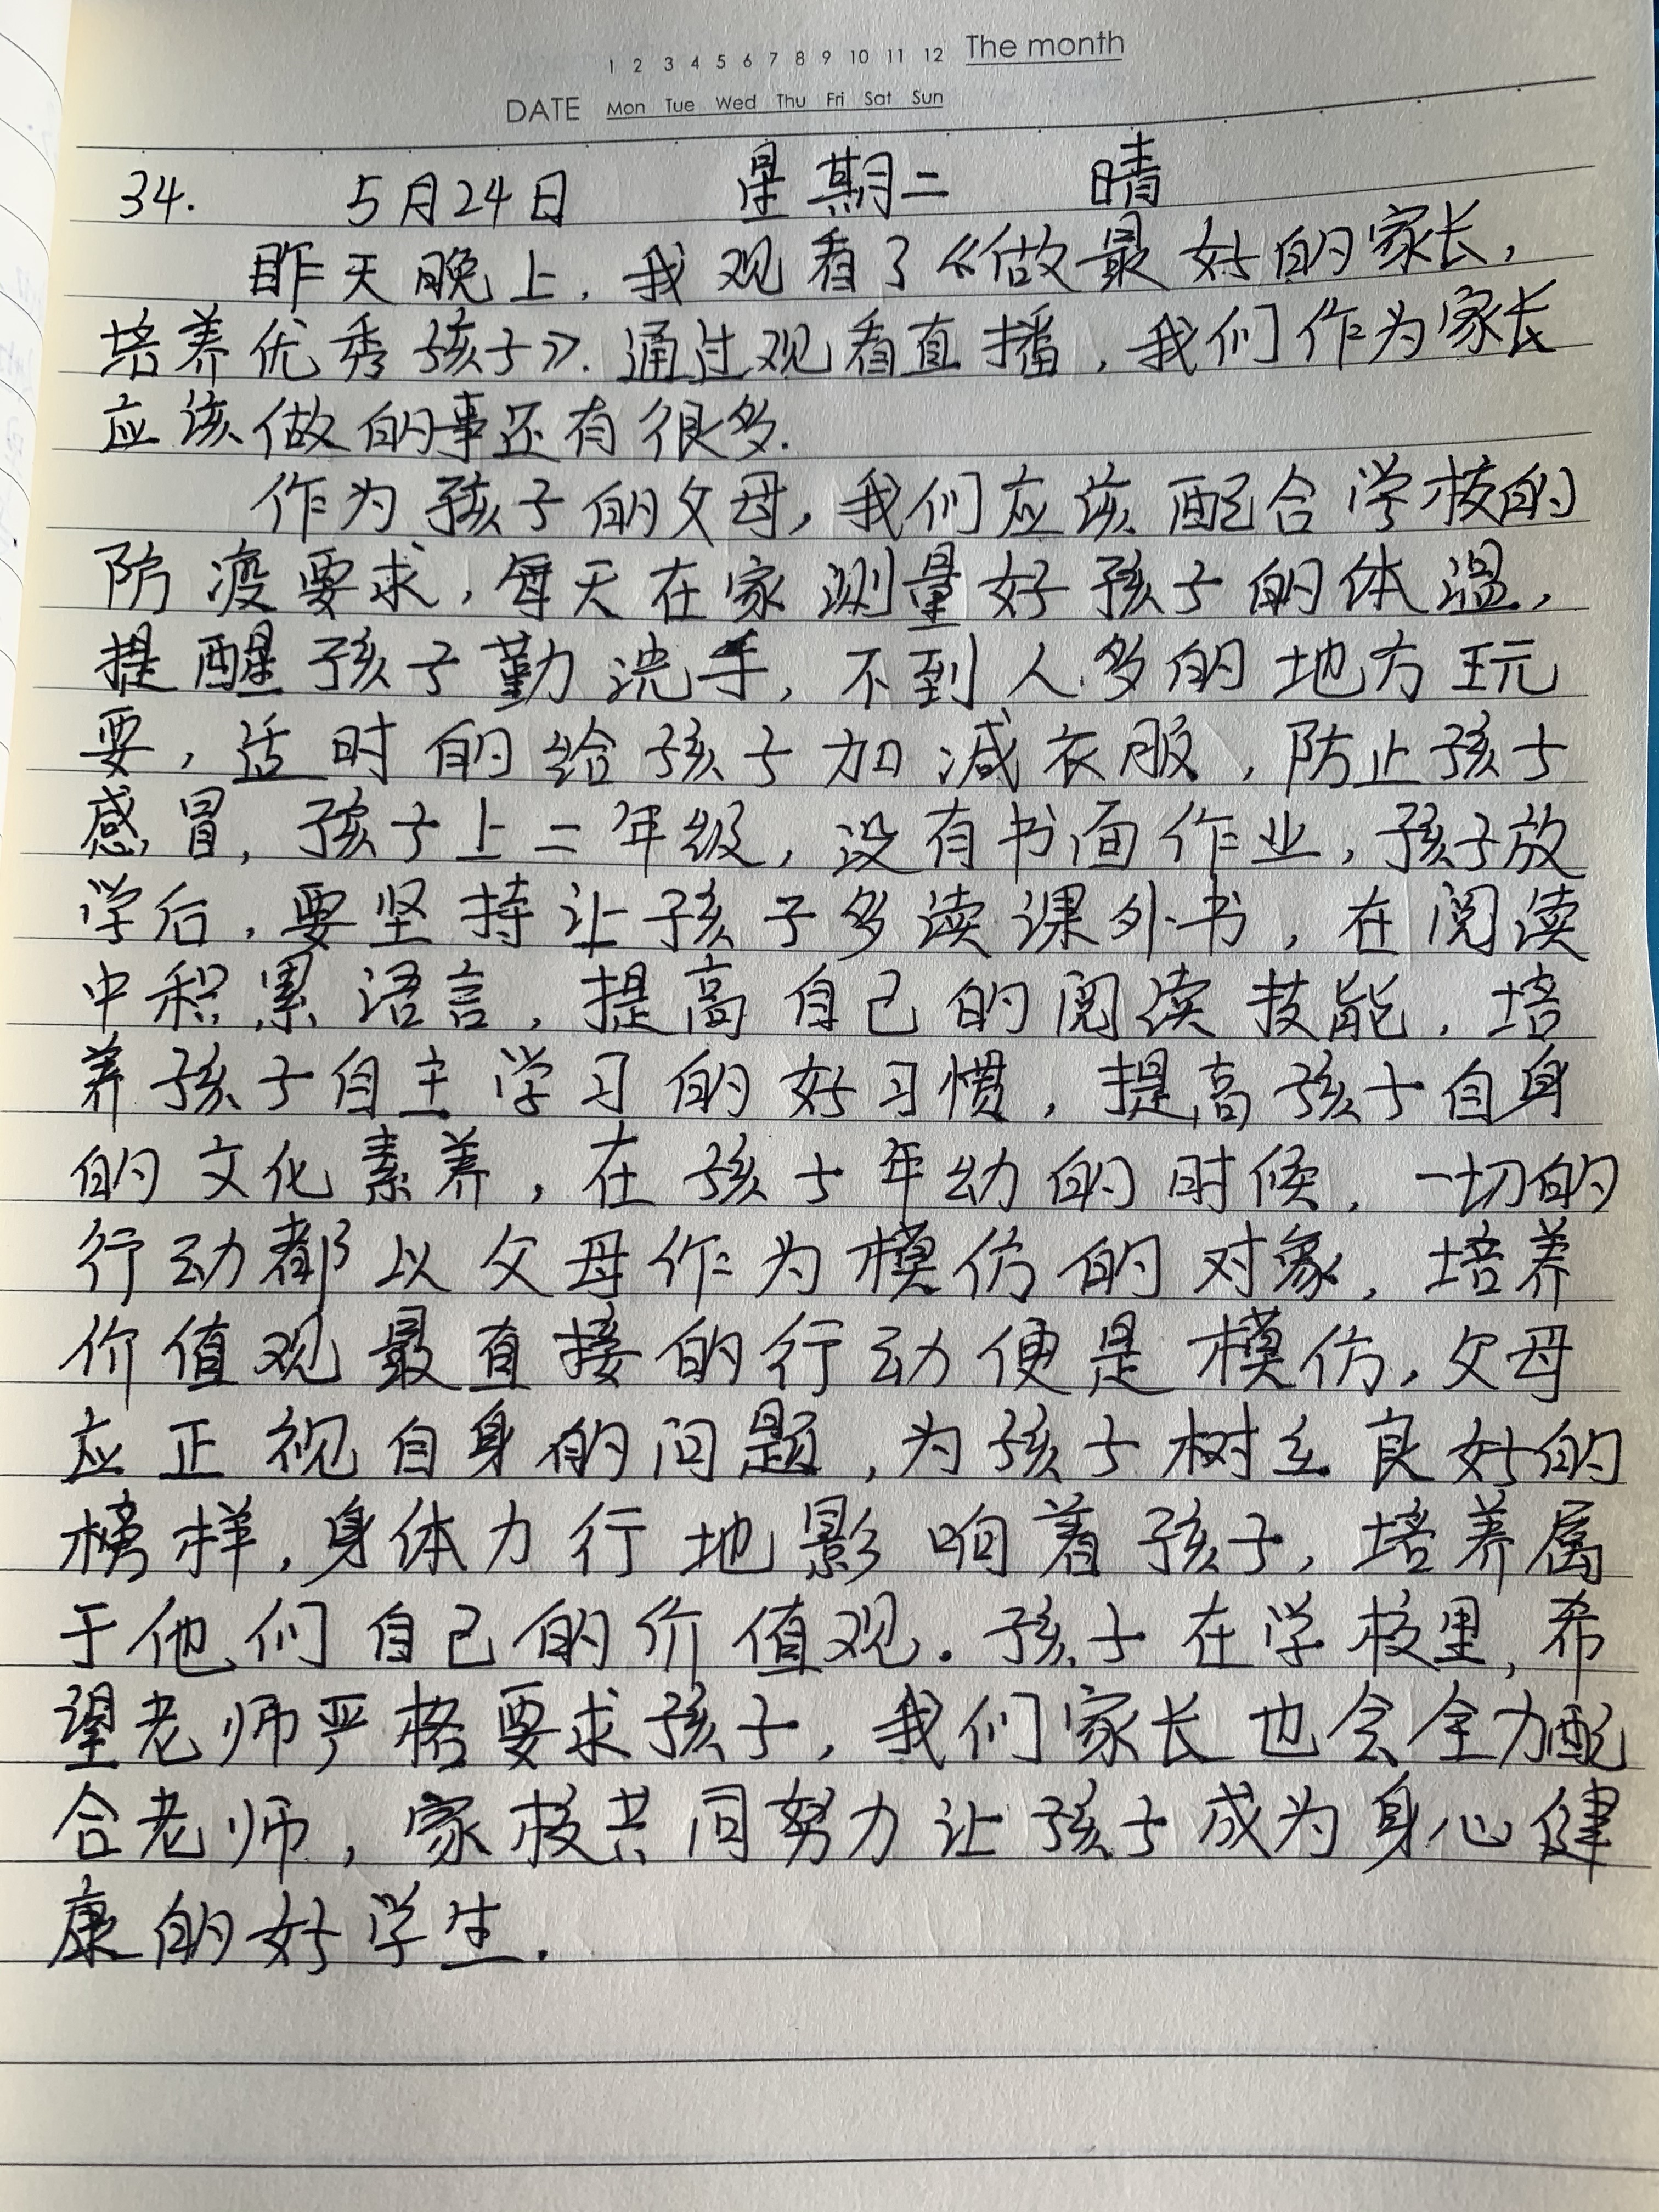 1 2 3 4 5 6 7 8 9 10 11 12 The month
DATE Mon Tue Wed Thu Fri Sat Sun
34. 5月24日 星期二 晴
昨天晚上,我观看了《做最好的家长,
培养优秀孩子》.通过观看直播,我们作为家长
应该做的事还有很多.
作为孩子的父母,我们应该配合学校的
防疫要求,每天在家测量好孩子的体温,
提醒孩子勤洗手,不到人多的地方玩
要,适时的给孩子加减衣服,防止孩子
感冒,孩子上二年级,没有书面作业,孩子放
学后,要坚持让孩子多读课外书,在阅读
中积累语言,提高自己的阅读技能,培
养孩子自主学习的好习惯,提高孩子自身
的文化素养,在孩子年幼的时候,一切的
行动都以父母作为模仿的对象,培养
价值观最直接的行动便是模仿,父母
应正视自身的问题,为孩子树立良好的
榜样,身体力行地影响着孩子,培养属
于他们自己的价值观.孩子在学校里,希
望老师严格要求孩子,我们家长也会全力配
合老师,家校共同努力让孩子成为身心健
康的好学生.